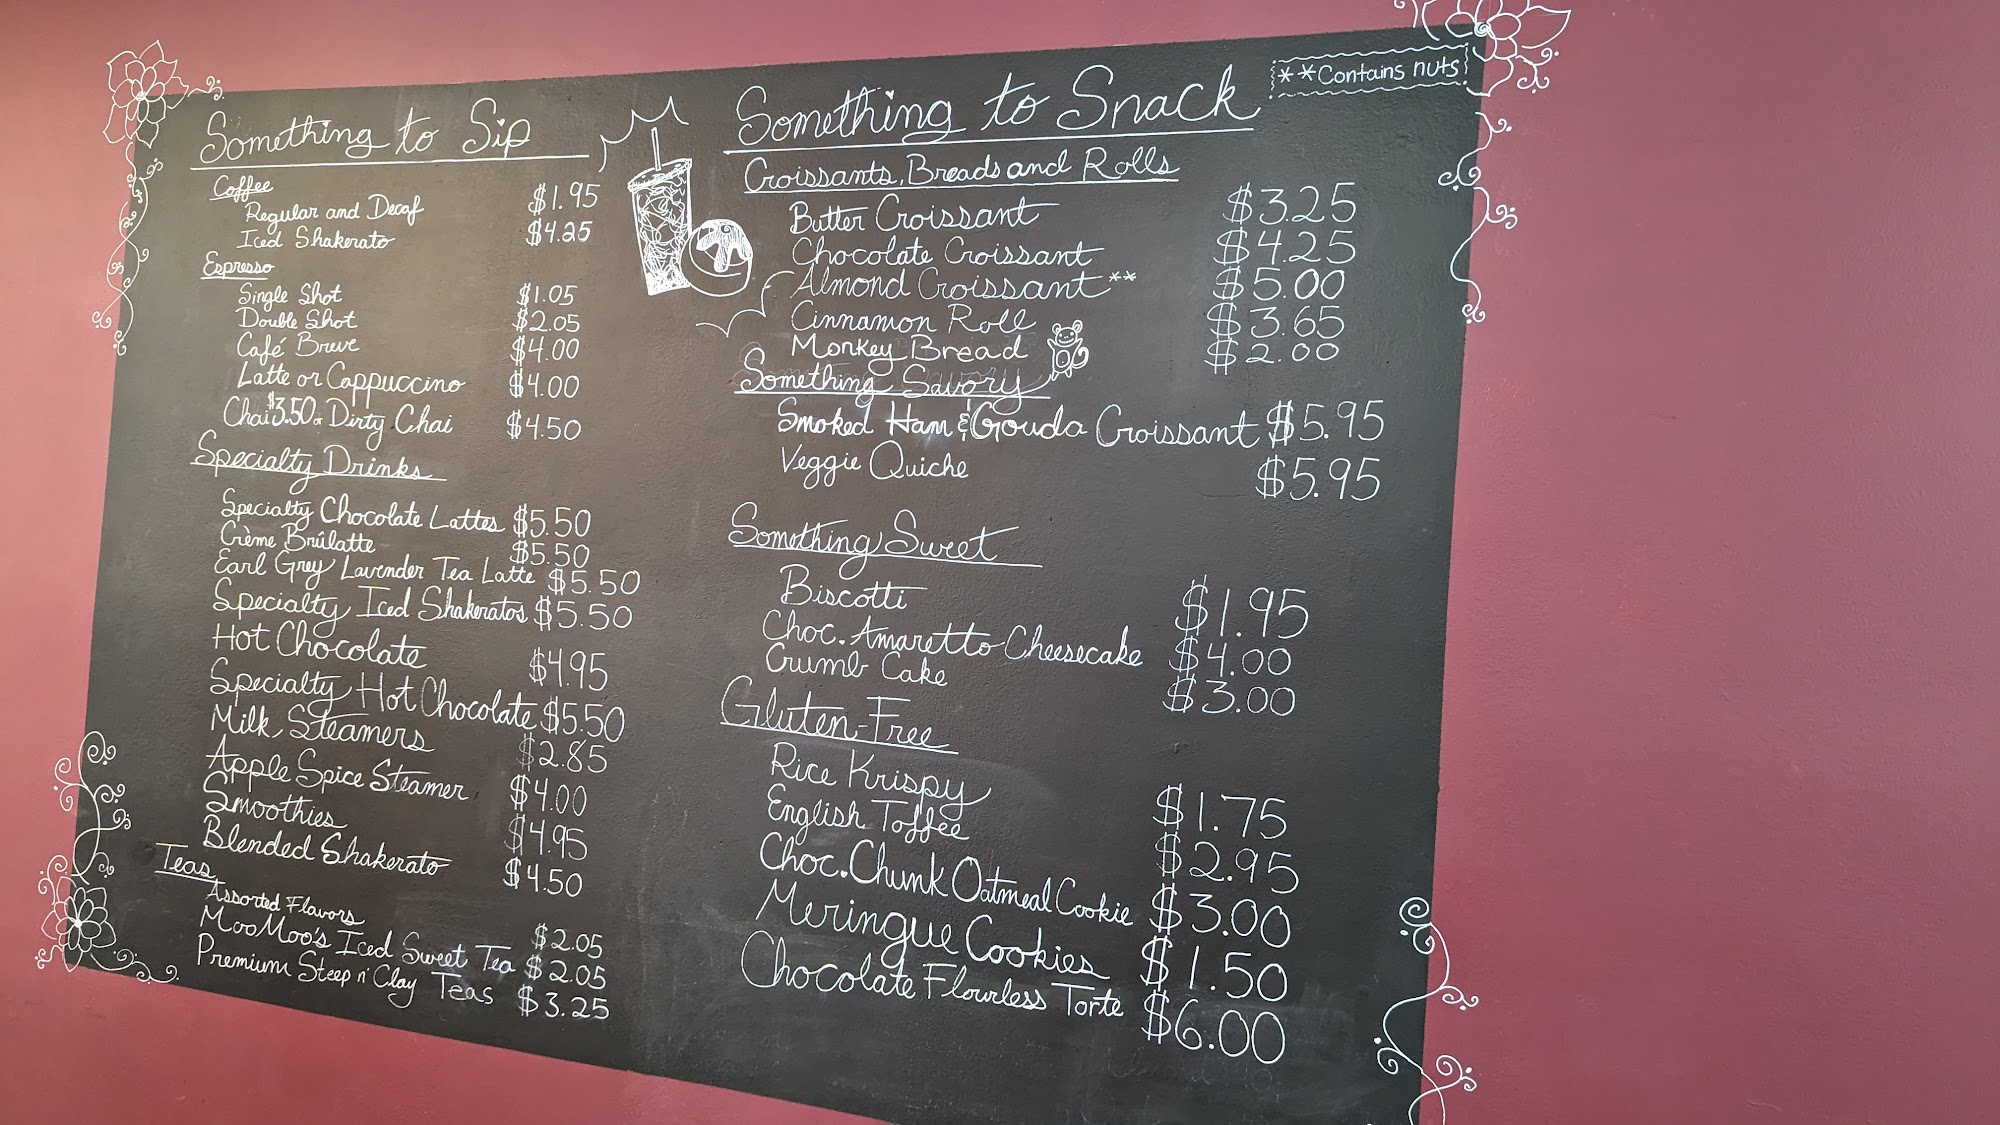 Something to Sip
Coffee
Regular and Decaf $1.95
Iced Shakerato $4.25
Espresso
Single Shot $1.05
Double Shot $2.05
Café Breve $4.00
Latte or Cappuccino $4.00
Chai $3.50 or Dirty Chai $4.50
Specialty Drinks
Specialty Chocolate Lattes $5.50
Crème Brûlatte $5.50
Earl Grey Lavender Tea Latte $5.50
Specialty Iced Shakeratos $5.50
Hot Chocolate $4.95
Specialty Hot Chocolate $5.50
Milk Steamers $2.85
Apple Spice Steamer $4.00
Smoothies $4.95
Blended Shakerato $4.50
Teas
Assorted Flavors $2.05
MooMoo's Iced Sweet Tea $2.05
Premium Steep n' Clay Teas $3.25
Something to Snack
**Contains nuts
Croissants, Breads and Rolls
Butter Croissant $3.25
Chocolate Croissant $4.25
Almond Croissant** $5.00
Cinnamon Roll $3.65
Monkey Bread $2.00
Something Savory
Smoked Ham & Gouda Croissant $5.95
Veggie Quiche $5.95
Something Sweet
Biscotti $1.95
Choc. Amaretto Cheesecake $4.00
Crumb Cake $3.00
Gluten-Free
Rice Krispy $1.75
English Toffee $2.95
Choc. Chunk Oatmeal Cookie $3.00
Meringue Cookies $1.50
Chocolate Flourless Torte $6.00